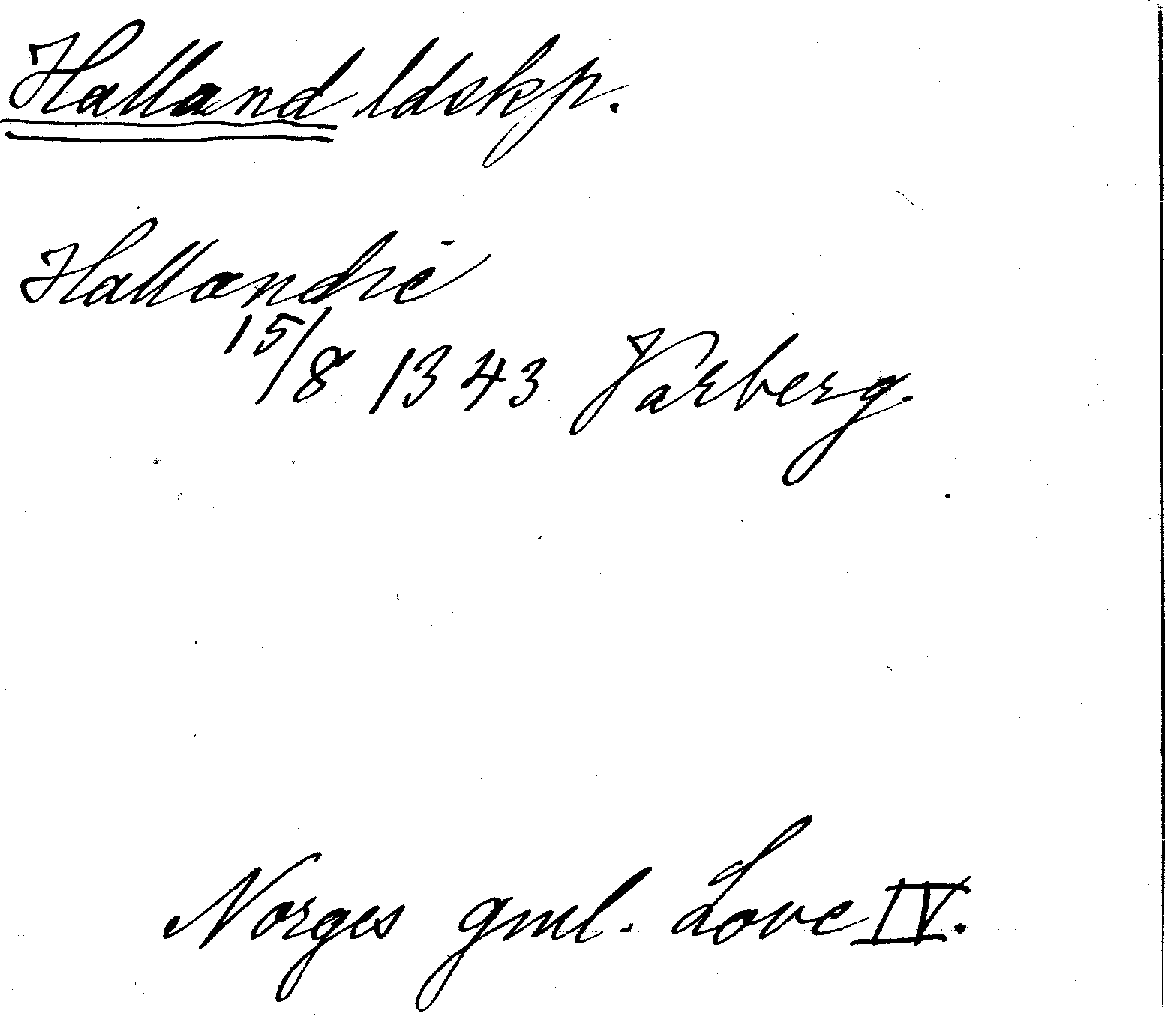 Halland ldskp.
Hallandie
15/8 1343 Varberg.
Norges gml. Love IV.